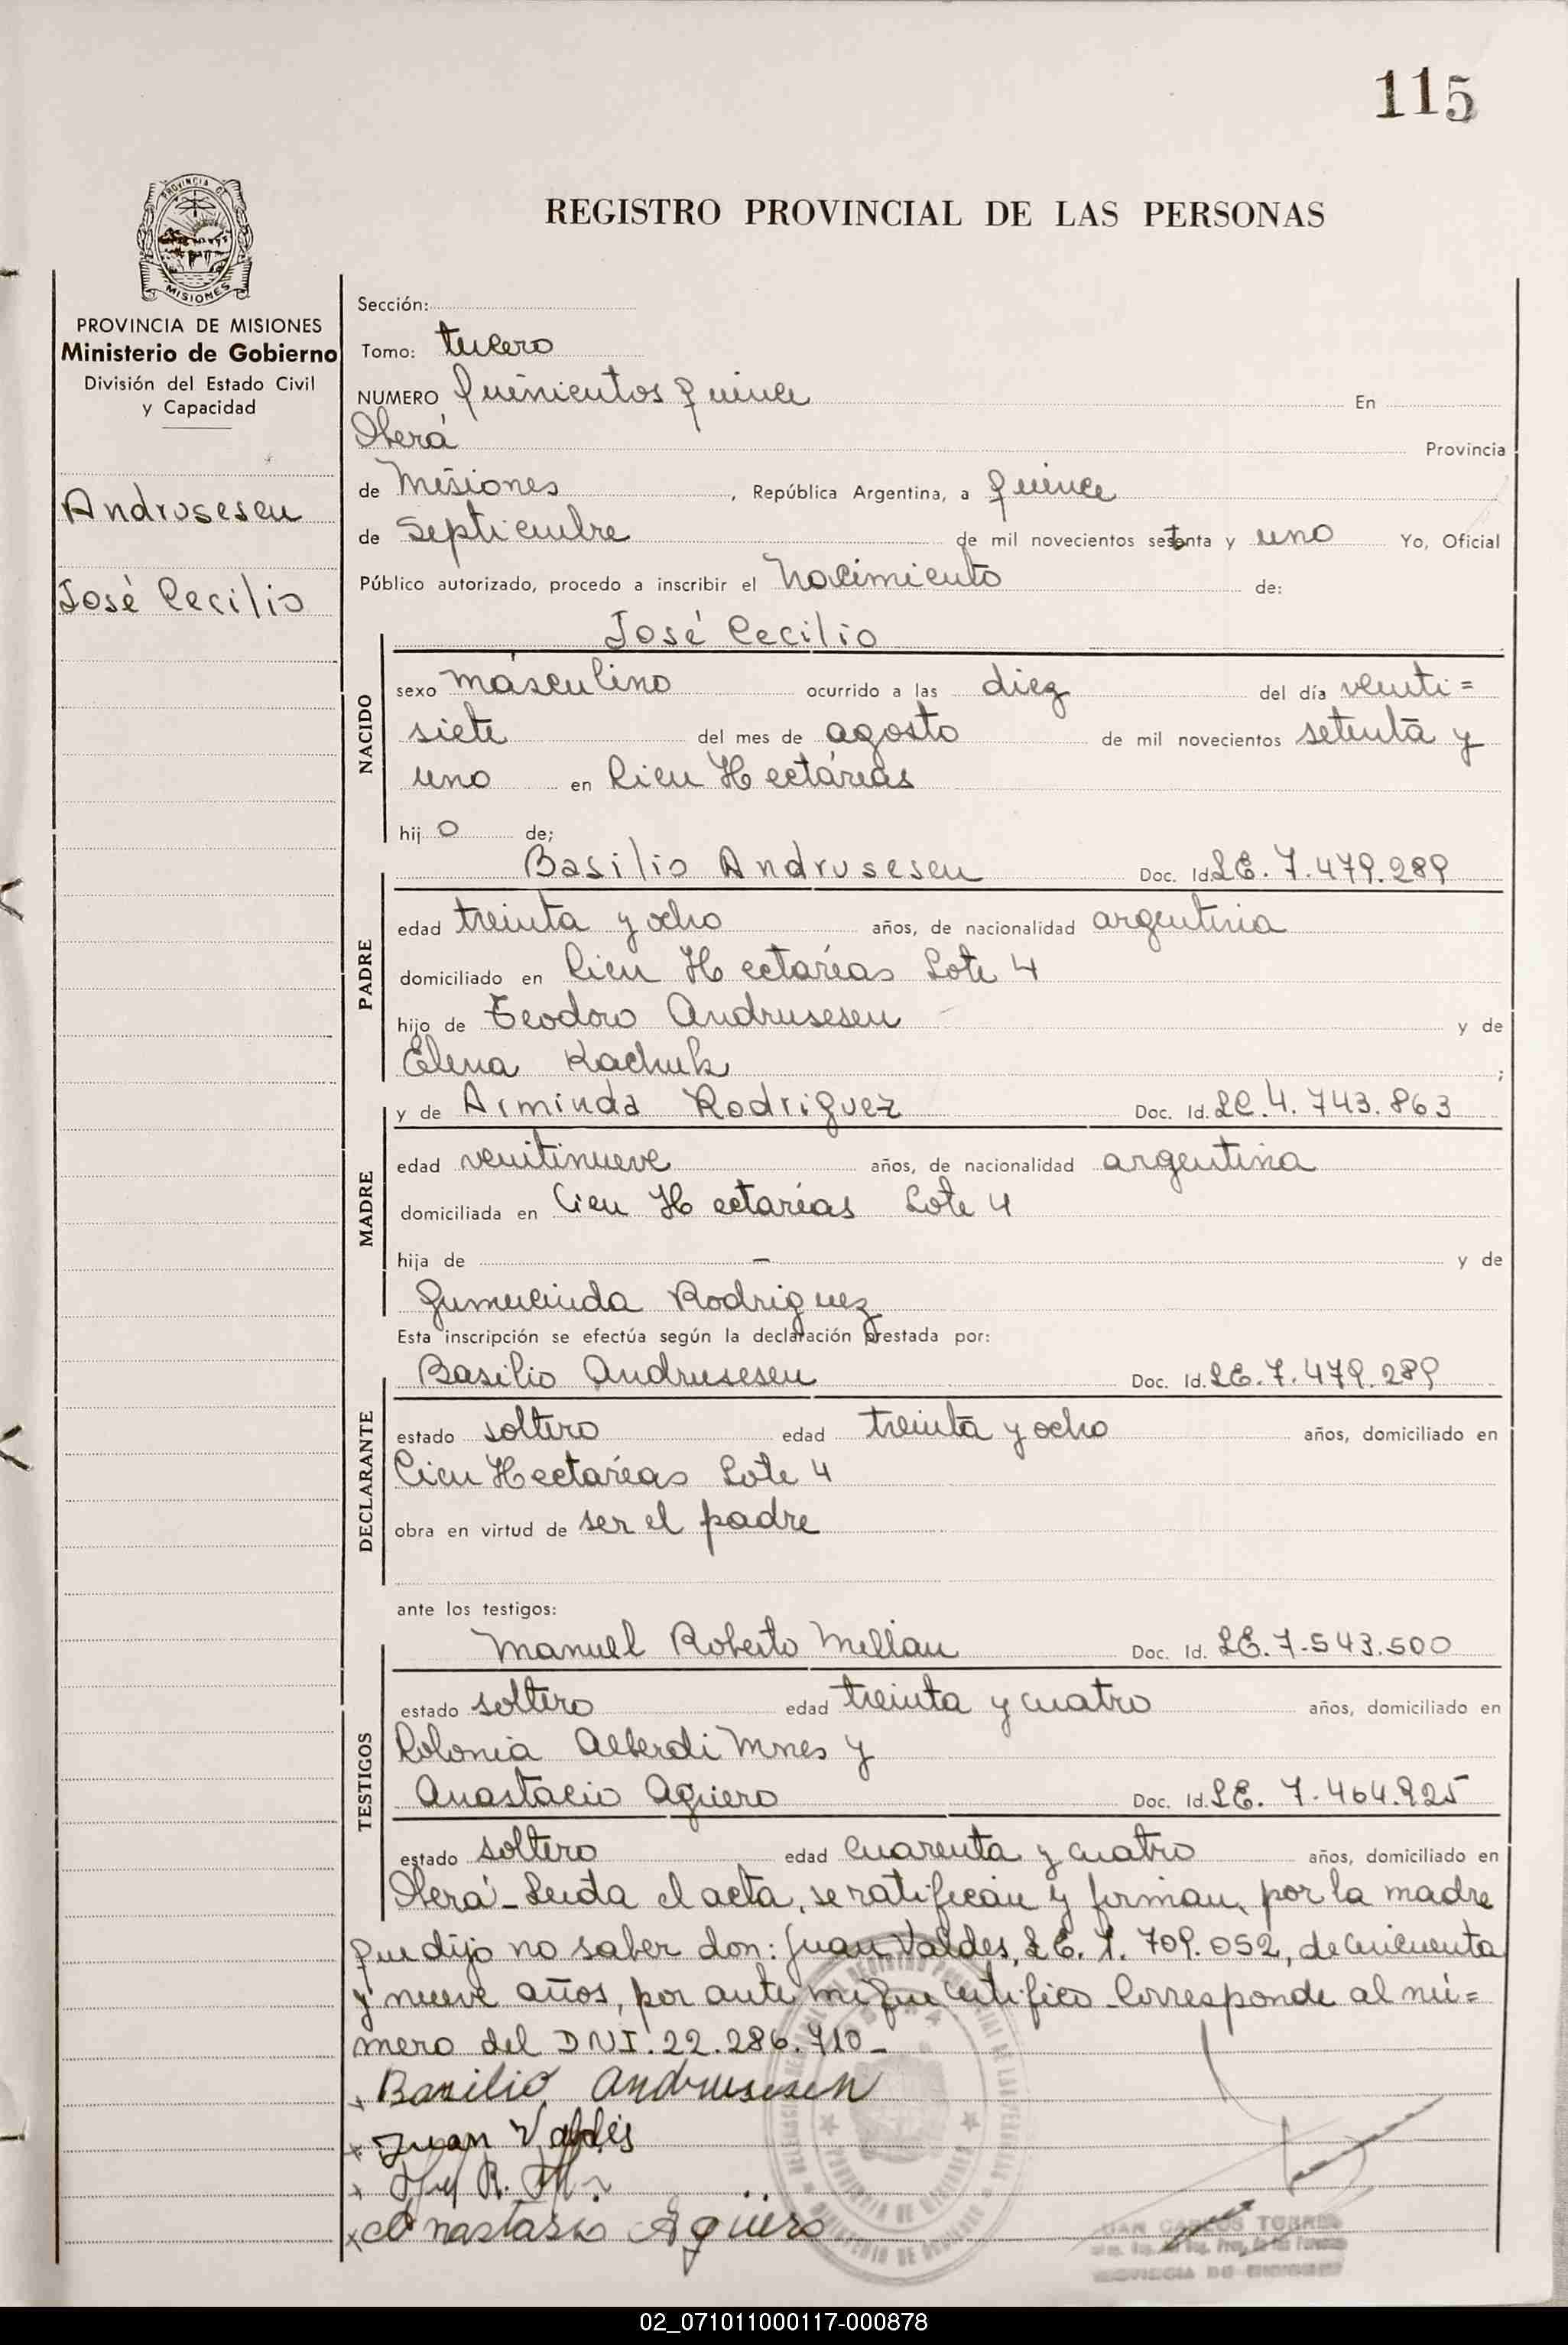 115
REGISTRO PROVINCIAL DE LAS PERSONAS
PROVINCIA DE
MISIONES
PROVINCIA DE MISIONES
Ministerio de Gobierno
División del Estado Civil
y Capacidad
Andrusesen
José Cecilio
Sección:
Tomo: tercero
NUMERO Quinientos quince En
Oberá Provincia
de Misiones, República Argentina, a quince
de Septiembre de mil novecientos setenta y uno Yo, Oficial
Público autorizado, procedo a inscribir el Nacimiento de:
José Cecilio
NACIDO
sexo masculino ocurrido a las diez del día venti=
siete del mes de agosto de mil novecientos setenta y
uno en Cien Hectáreas
hijo de;
Basilio Andrusesen Doc. Id. LE. 7.479.289
PADRE
edad treinta y ocho años, de nacionalidad argentina
domiciliado en Cien Hectáreas Lote 4
hijo de Teodoro Andrusesen y de
Elena Kachuk ;
y de Arminda Rodriguez Doc. Id. LC. 4.743.863
MADRE
edad ventinueve años, de nacionalidad argentina
domiciliada en Cien Hectáreas Lote 4
hija de — y de
Gumercinda Rodriguez
Esta inscripción se efectúa según la declaración prestada por:
Basilio Andrusesen Doc. Id. LE. 7.479.289
DECLARANTE
estado soltero edad treinta y ocho años, domiciliado en
Cien Hectáreas Lote 4
obra en virtud de ser el padre
ante los testigos:
Manuel Roberto Millan Doc. Id. LE. 7.543.500
TESTIGOS
estado soltero edad treinta y cuatro años, domiciliado en
Colonia Alberdi Mnes y
Anastacio Aguero Doc. Id. LE. 7.464.925
estado soltero edad cuarenta y cuatro años, domiciliado en
Oberá - Leida el acta, se ratifican y firman, por la madre
que dijo no saber don: Juan Valdes, LE. 709.052, de cincuenta
y nueve años, por ante mi que certifico. Corresponde al nú=
mero del DNI. 22.286.710-
x Basilio Andrusesen
x Juan Valdés
x
x Anastasio Aguero
JUAN CARLOS TORRES
PROVINCIA DE MISIONES
02_071011000117-000878